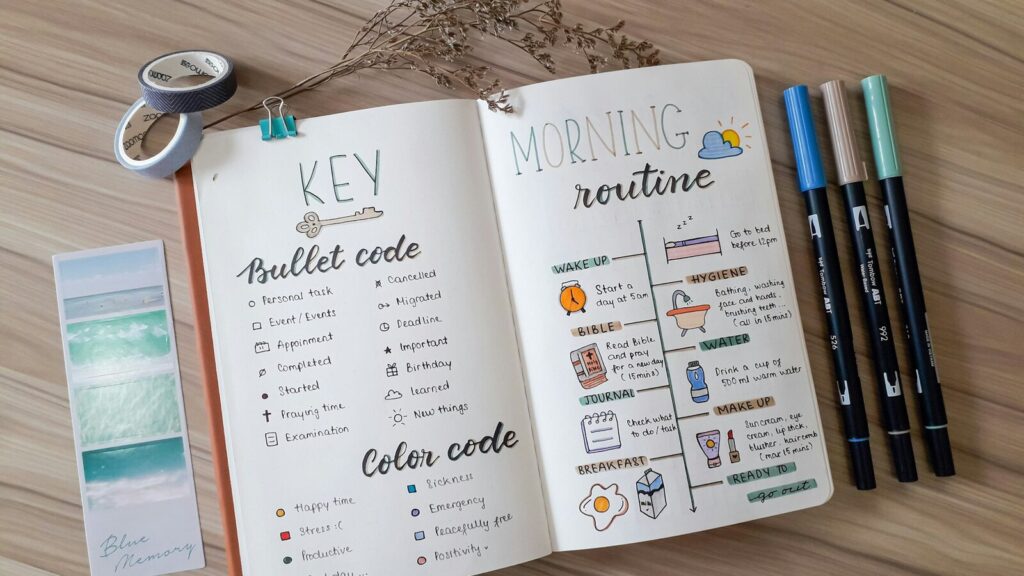 ZOOMOO
KEY
Bullet code
Personal task
Event/Events
Appoinment
Completed
Started
Praying time
Examination
Cancelled
Migrated
Deadline
Important
Birthday
Learned
New things
Color code
Happy time
Stress :(
Productive
Sickness
Emergency
Peacefully free
Positivity
MORNING
routine
zzz
Go to bed
before 12pm
WAKE UP
Start a
day at 5am
HYGIENE
Bathing, washing
face and hands,
brushing teeth...
(all in 15mins)
BIBLE
Read Bible
and pray
for a new day
(15mins)
WATER
Drink a cup of
500ml warm water
JOURNAL
Check what
to do/task
MAKE UP
Sun cream, eye
cream, lip stick,
blusher, haircomb
(max 15mins)
BREAKFAST
READY TO
go out
Blue
Memory
Tombow ABT
526
Tombow ABT
992